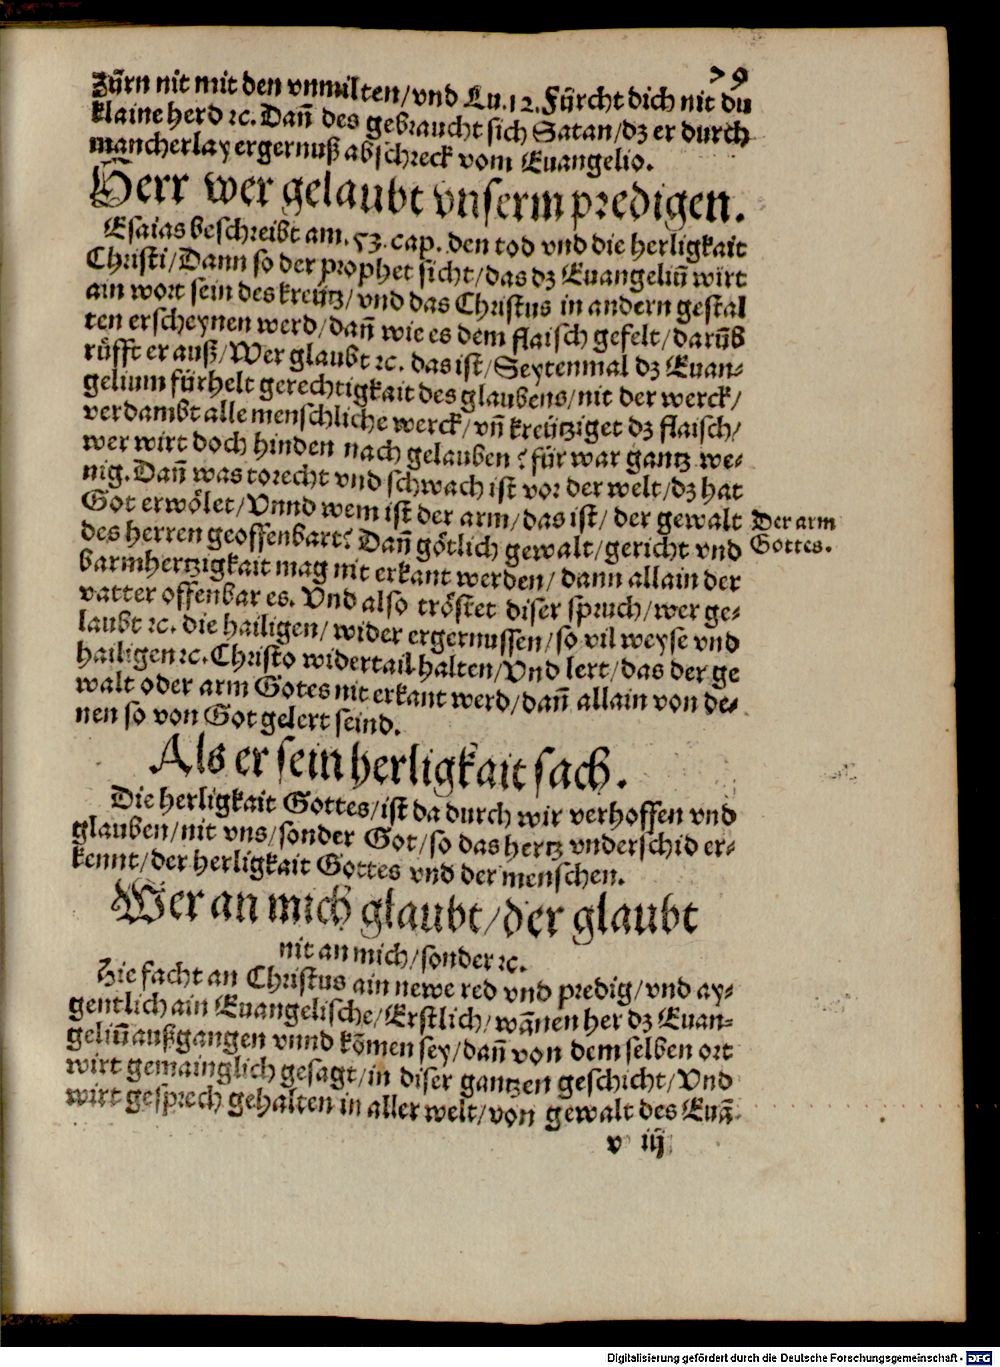 79
Zürn nit mit den vnmilten/vnd Lu.12. Fürcht dich nit du
klaine herd ꝛc. Dañ des gebraucht sich Satan/dz er durch
mancherlay ergernuß abschreck vom Euangelio.
Herr wer gelaubt vnserm predigen.
Esaias beschreibt am. 53. cap. den tod vnd die herligkait
Christi/Dann so der prophet sicht/das dz Euangeliũ wirt
ain wort sein des kreütz/vnd das Christus in andern gestal
ten erscheynen werd/dañ wie es dem flaisch gefelt/darũb
rüfft er auß/Wer glaubt ꝛc. das ist/Seytenmal dz Euan-
gelium fürhelt gerechtigkait des glaubens/nit der werck/
verdambt alle menschliche werck/vñ kreütziget dz flaisch/
wer wirt doch hinden nach gelauben? für war gantz we-
nig. Dañ was torecht vnd schwach ist vor der welt/dz hat
Got erwölet/Vnnd wem ist der arm/das ist/der gewalt
Der arm
Gottes.
des herren geoffenbart? Dañ götlich gewalt/gericht vnd
barmhertzigkait mag nit erkant werden/dann allain der
vatter offenbar es. Vnd also tröstet diser spruch/wer ge-
laubt ꝛc. die hailigen/wider ergernussen/so vil weyse vnd
hailigen ꝛc. Christo widertail halten/Vnd lert/das der ge
walt oder arm Gotes nit erkant werd/dañ allain von de-
nen so von Got gelert seind.
Als er sein herligkait sach.
Die herligkait Gottes/ist da durch wir verhoffen vnd
glauben/nit vns/sonder Got/so das hertz vnderschid er-
kennt/der herligkait Gottes vnd der menschen.
Wer an mich glaubt/der glaubt
nit an mich/sonder ꝛc.
Hie facht an Christus ain newe red vnd predig/vnd ay-
gentlich ain Euangelische/Erstlich/wãnen her dz Euan-
geliũ außgangen vnnd kõmen sey/dañ von dem selben ort
wirt gemainglich gesagt/in diser gantzen geschicht/Vnd
wirt gesprech gehalten in aller welt/von gewalt des Euã-
v iij
Digitalisierung gefördert durch die Deutsche Forschungsgemeinschaft - DFG